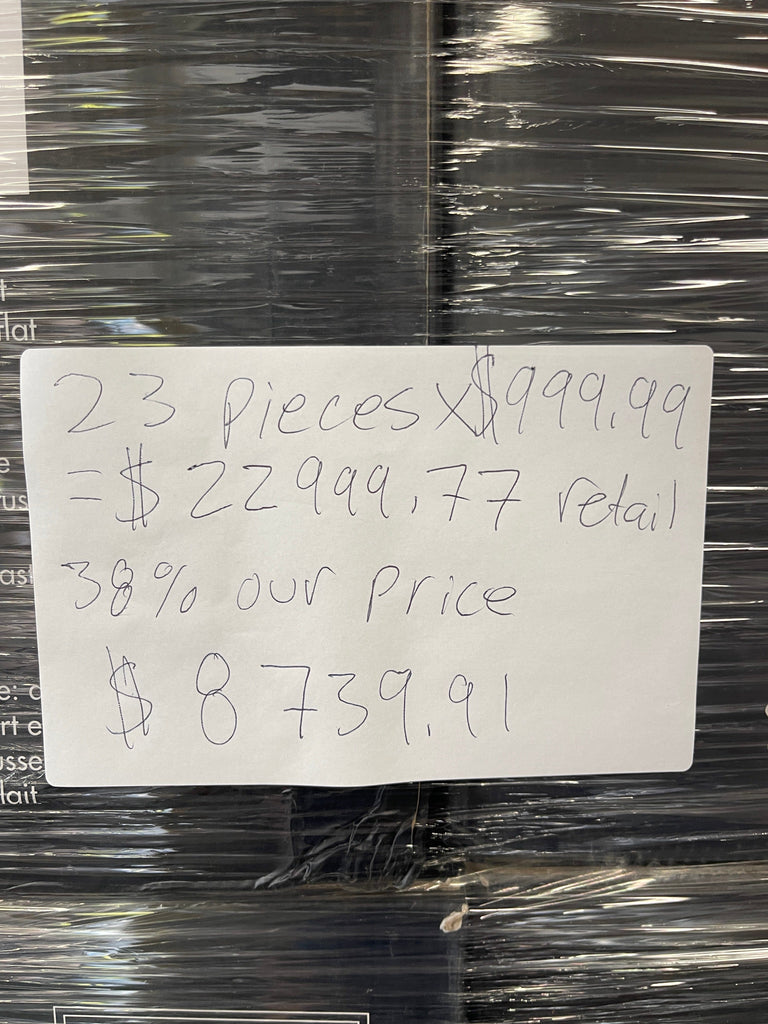 23 pieces x$999.99
=$ 22999.77 retail
38% our price
$ 8739.91
t
flat
e
rus
ast
rt e
usse
lait